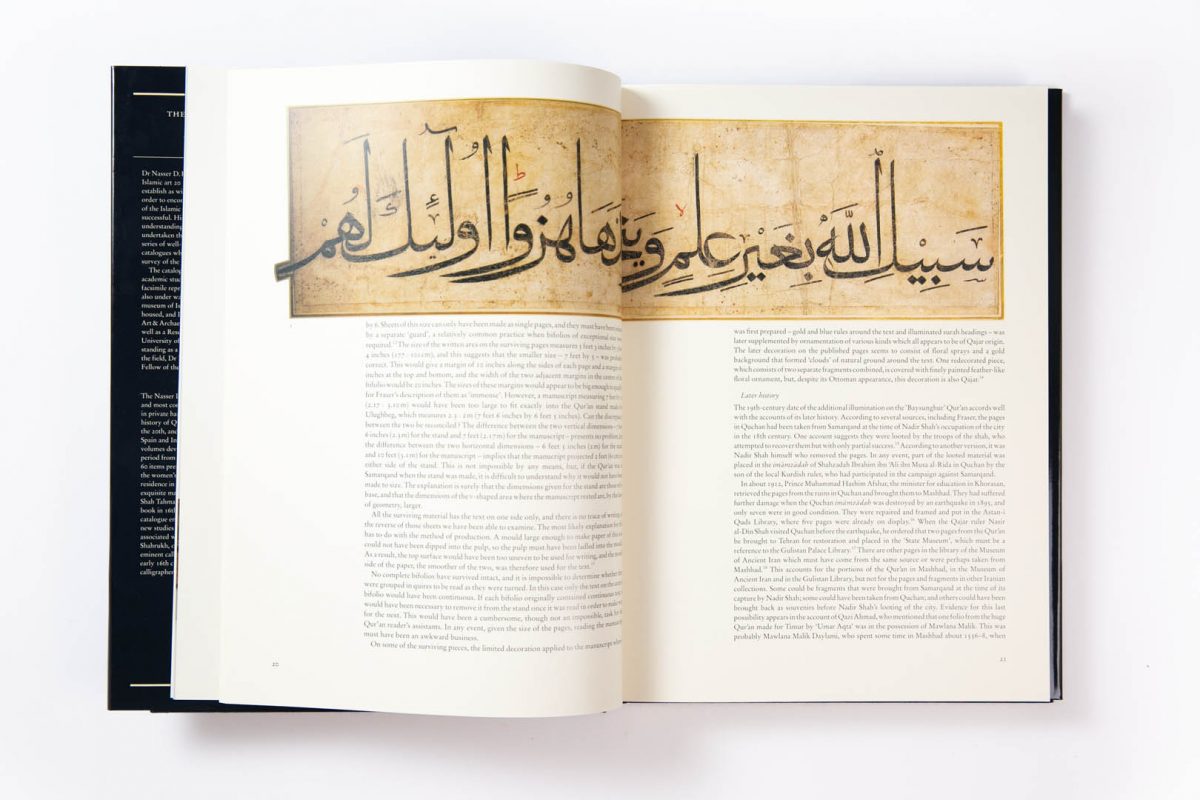 THE
Dr Nasser D.
Islamic art 20
establish as wi
order to enco
of the Islamic
successful. Hi
understanding
undertaken th
series of well-
catalogues wh
survey of the
The catalog
academic stud
facsimile repr
also under wa
museum of Is
housed, and
Art & Archae
well as a Rese
University of
standing as a
the field, Dr
Fellow of the
The Nasser
and most co
in private ha
history of Q
the 20th, and
Spain and In
volumes dev
period from
60 items pre
the women's
residence in
exquisite ma
Shah Tahma
book in 16th
catalogue en
new studies
associated w
Shahrukh,
eminent call
early 16th c
calligrapher
سَبِيلِ اللَّهِ بِغَيْرِ عِلْمٍ وَيَتَّخِذَهَا هُزُوًا أُولَٰئِكَ لَهُمْ
by 6. Sheets of this size can only have been made as single pages, and they must have been
by a separate 'guard', a relatively common practice when bifolios of exceptional size
required. The size of the written area on the surviving pages measures 5 feet 3 inches by
4 inches (177 · 101cm), and this suggests that the smaller size – 7 feet by 5 – was
correct. This would give a margin of 12 inches along the sides of each page and a
inches at the top and bottom, and the width of the two adjacent margins in the centre of
bifolio would be 20 inches. The sizes of these margins would appear to be big enough to
for Fraser's description of them as 'immense'. However, a manuscript measuring 7 feet
(2.17 · 3.10m) would have been too large to fit exactly into the Qur'an stand made
Ulughbeg, which measures 2.3 · 2m (7 feet 6 inches by 6 feet 5 inches). Can the
between the two be reconciled? The difference between the two vertical dimensions – 7
6 inches (2.3m) for the stand and 7 feet (2.17m) for the manuscript – presents no problem,
the difference between the two horizontal dimensions – 6 feet 5 inches (2m) for the
and 10 feet (3.1m) for the manuscript – implies that the manuscript projected 2 feet
either side of the stand. This is not impossible by any means, but, if the Qur'an was
Samarqand when the stand was made, it is difficult to understand why it would not have
made to size. The explanation is surely that the dimensions given for the stand are those
base, and that the dimensions of the v-shaped area where the manuscript rested are, by the
of geometry, larger.
All the surviving material has the text on one side only, and there is no trace of writing
the reverse of those sheets we have been able to examine. The most likely explanation
has to do with the method of production. A mould large enough to make paper of this
could not have been dipped into the pulp, so the pulp must have been ladled into the
As a result, the top surface would have been too uneven to be used for writing, and the
side of the paper, the smoother of the two, was therefore used for the text.
No complete bifolios have survived intact, and it is impossible to determine whether
were grouped in quires to be read as they were turned. In this case only the text on the
bifolio would have been continuous. If each bifolio originally contained continuous
would have been necessary to remove it from the stand once it was read in order to make
for the next. This would have been a cumbersome, though not an impossible, task
Qur'an reader's assistants. In any event, given the size of the pages, reading the
must have been an awkward business.
On some of the surviving pieces, the limited decoration applied to the manuscript when
20
was first prepared – gold and blue rules around the text and illuminated surah headings – was
later supplemented by ornamentation of various kinds which all appears to be of Qajar origin.
The later decoration on the published pages seems to consist of floral sprays and a gold
background that formed 'clouds' of natural ground around the text. One redecorated piece,
which consists of two separate fragments combined, is covered with finely painted feather-like
floral ornament, but, despite its Ottoman appearance, this decoration is also Qajar.
Later history
The 19th-century date of the additional illumination on the 'Baysunghur' Qur'an accords well
with the accounts of its later history. According to several sources, including Fraser, the pages
in Quchan had been taken from Samarqand at the time of Nadir Shah's occupation of the city
in the 18th century. One account suggests they were looted by the troops of the shah, who
attempted to recover them but with only partial success. According to another version, it was
Nadir Shah himself who removed the pages. In any event, part of the looted material was
placed in the imāmzādah of Shahzadah Ibrahim ibn 'Ali ibn Musa al-Rida in Quchan by the
son of the local Kurdish ruler, who had participated in the campaign against Samarqand.
In about 1912, Prince Muhammad Hashim Afshar, the minister for education in Khorasan,
retrieved the pages from the ruins in Quchan and brought them to Mashhad. They had suffered
further damage when the Quchan imāmzādah was destroyed by an earthquake in 1895, and
only seven were in good condition. They were repaired and framed and put in the Astan-i
Quds Library, where five pages were already on display. When the Qajar ruler Nasir
al-Din Shah visited Quchan before the earthquake, he ordered that two pages from the Qur'an
be brought to Tehran for restoration and placed in the 'State Museum', which must be a
reference to the Gulistan Palace Library. There are other pages in the library of the Museum
of Ancient Iran which must have come from the same source or were perhaps taken from
Mashhad. This accounts for the portions of the Qur'an in Mashhad, in the Museum of
Ancient Iran and in the Gulistan Library, but not for the pages and fragments in other Iranian
collections. Some could be fragments that were brought from Samarqand at the time of its
capture by Nadir Shah; some could have been taken from Quchan; and others could have been
brought back as souvenirs before Nadir Shah's looting of the city. Evidence for this last
possibility appears in the account of Qazi Ahmad, who mentioned that one folio from the huge
Qur'an made for Timur by 'Umar Aqta' was in the possession of Mawlana Malik. This was
probably Mawlana Malik Daylami, who spent some time in Mashhad about 1556–8, when
21